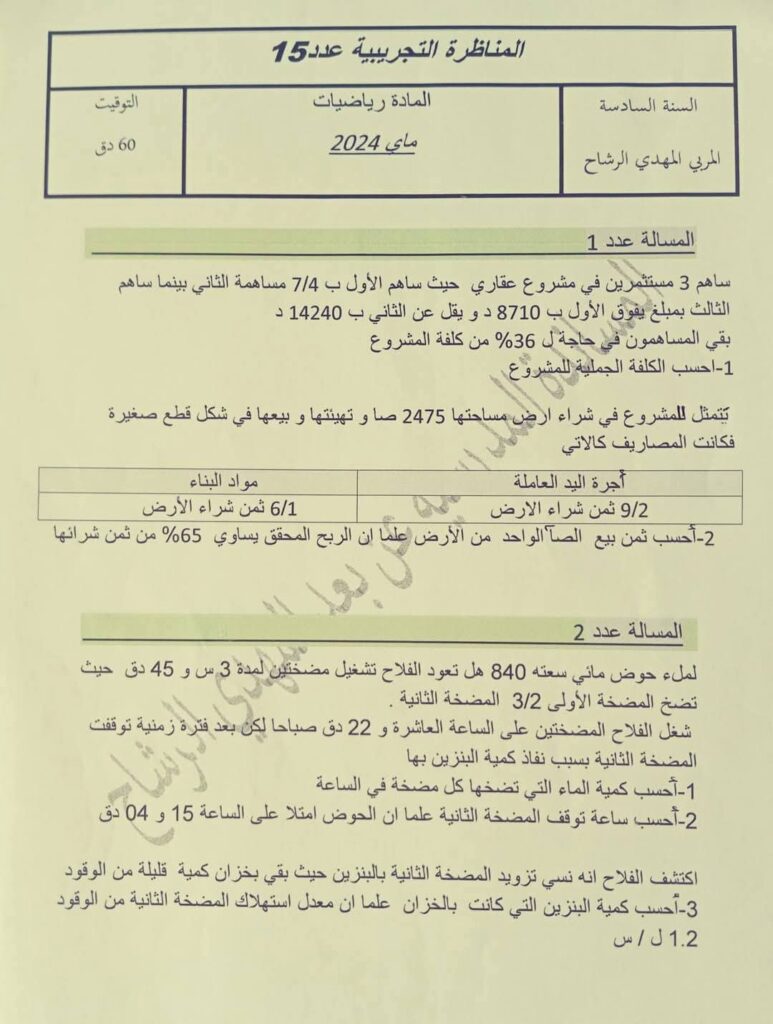 المناظرة التجريبية عدد15
السنة السادسة
المربي المهدي الرشاح
المادة رياضيات
ماي 2024
التوقيت
60 دق
المسالة عدد 1
ساهم 3 مستثمرين في مشروع عقاري حيث ساهم الأول ب 7/4 مساهمة الثاني بينما ساهم
الثالث بمبلغ يفوق الأول ب 8710 د و يقل عن الثاني ب 14240 د
بقي المساهمون في حاجة ل 36% من كلفة المشروع
1-احسب الكلفة الجملية للمشروع
تتمثل المشروع في شراء ارض مساحتها 2475 صا و تهيئتها و بيعها في شكل قطع صغيرة
فكانت المصاريف كالاتي
أجرة اليد العاملة مواد البناء
9/2 ثمن شراء الارض 6/1 ثمن شراء الأرض
2-أحسب ثمن بيع الصآ الواحد من الأرض علما ان الربح المحقق يساوي 65% من ثمن شرائها
المسالة عدد 2
لملء حوض مائي سعته 840 هل تعود الفلاح تشغيل مضختين لمدة 3 س و 45 دق حيث
تضخ المضخة الأولى 3/2 المضخة الثانية .
شغل الفلاح المضختين على الساعة العاشرة و 22 دق صباحا لكن بعد فترة زمنية توقفت
المضخة الثانية بسبب نفاذ كمية البنزين بها
1-أحسب كمية الماء التي تضخها كل مضخة في الساعة
2-أحسب ساعة توقف المضخة الثانية علما ان الحوض امتلا على الساعة 15 و 04 دق
اكتشف الفلاح انه نسي تزويد المضخة الثانية بالبنزين حيث بقي بخزان كمية قليلة من الوقود
3-أحسب كمية البنزين التي كانت بالخزان علما ان معدل استهلاك المضخة الثانية من الوقود
1.2 ل / س
المساندة المدرسية عن بعد المهدي الرشاح